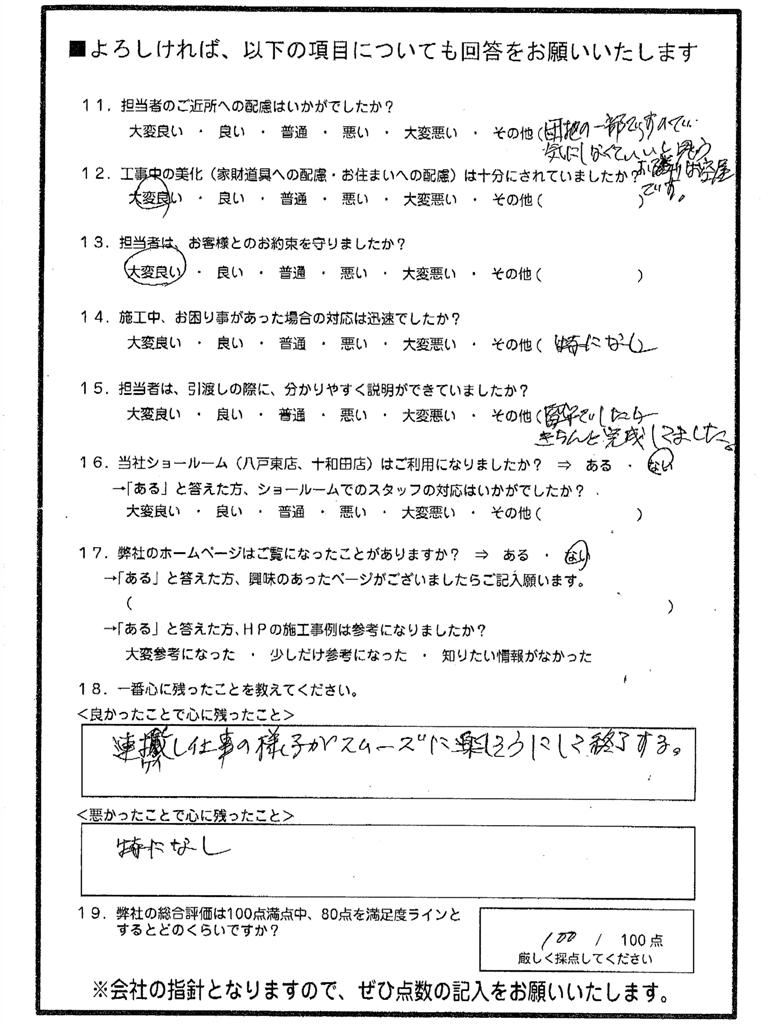 ■よろしければ、以下の項目についても回答をお願いいたします
11．担当者のご近所への配慮はいかがでしたか？
大変良い ・ 良い ・ 普通 ・ 悪い ・ 大変悪い ・ その他（団地の一部ですので
気にしなくていいと思う
お隣りは空屋
です。
12．工事中の美化（家財道具への配慮・お住まいへの配慮）は十分にされていましたか？
大変良い ・ 良い ・ 普通 ・ 悪い ・ 大変悪い ・ その他（ ）
13．担当者は、お客様とのお約束を守りましたか？
大変良い ・ 良い ・ 普通 ・ 悪い ・ 大変悪い ・ その他（ ）
14．施工中、お困り事があった場合の対応は迅速でしたか？
大変良い ・ 良い ・ 普通 ・ 悪い ・ 大変悪い ・ その他（ 特になし
15．担当者は、引渡しの際に、分かりやすく説明ができていましたか？
大変良い ・ 良い ・ 普通 ・ 悪い ・ 大変悪い ・ その他（留守でしたら
きちんと完成してました。
16．当社ショールーム（八戸東店、十和田店）はご利用になりましたか？ ⇒ ある ・ ない
→「ある」と答えた方、ショールームでのスタッフの対応はいかがでしたか？
大変良い ・ 良い ・ 普通 ・ 悪い ・ 大変悪い ・ その他（ ）
17．弊社のホームページはご覧になったことがありますか？ ⇒ ある ・ ない
→「ある」と答えた方、興味のあったページがございましたらご記入願います。
（ ）
→「ある」と答えた方、HPの施工事例は参考になりましたか？
大変参考になった ・ 少しだけ参考になった ・ 知りたい情報がなかった
18．一番心に残ったことを教えてください。
＜良かったことで心に残ったこと＞
連携し仕事の様子がスムーズに楽しそうにして終了する。
＜悪かったことで心に残ったこと＞
特になし
19．弊社の総合評価は100点満点中、80点を満足度ラインと
するとどのくらいですか？
100 / 100点
厳しく採点してください
※会社の指針となりますので、ぜひ点数の記入をお願いいたします。